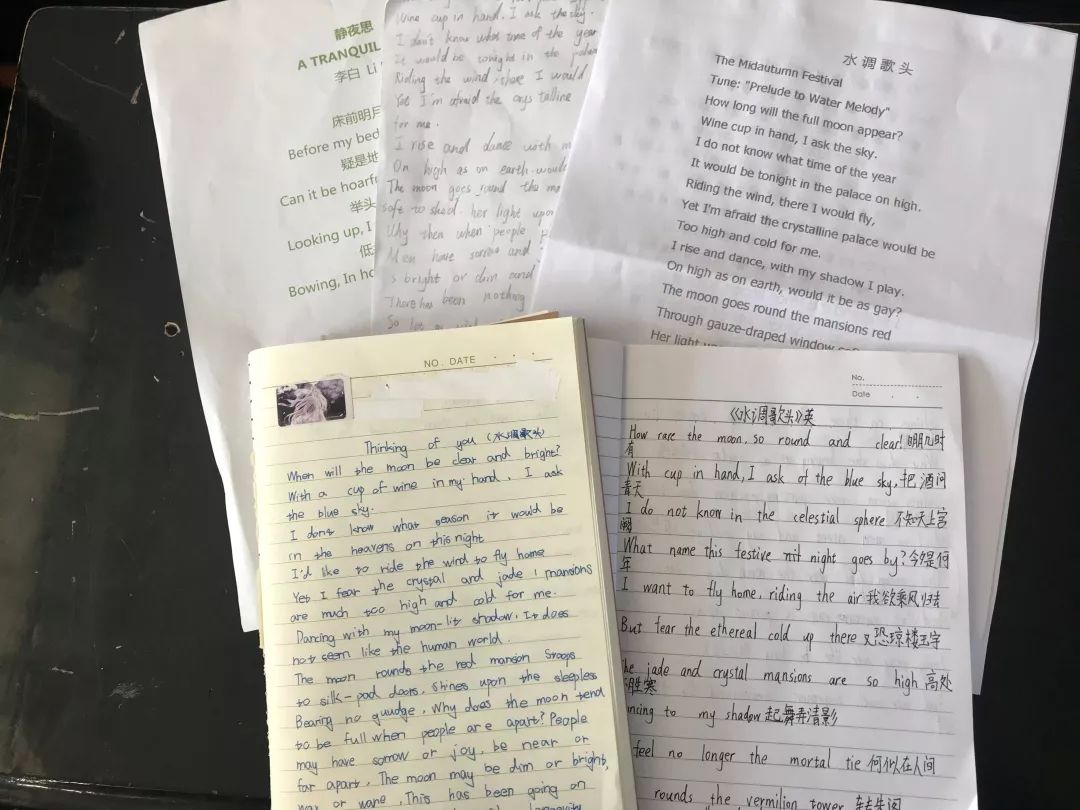 静夜思
A TRANQUIL
李白 Li
床前明月
Before my bed
疑是地
Can it be hoarf
举头
Looking up, I
低
Bowing, In ho
Wine cup in hand. I ask the sky.
I don't know what time of the year
It would be tonight in the palace
Riding the wind, there I would
Yet I'm afraid the crystalline
for me.
I rise and dance with m
On high as on earth would
The moon goes round the ma
soft to shed her light upon
Why then when people
Men have sorrow and
s bright or dim and
There has been nothing
So let
水调歌头
The Midautumn Festival
Tune: "Prelude to Water Melody"
How long will the full moon appear?
Wine cup in hand, I ask the sky.
I do not know what time of the year
It would be tonight in the palace on high.
Riding the wind, there I would fly,
Yet I'm afraid the crystalline palace would be
Too high and cold for me.
I rise and dance, with my shadow I play.
On high as on earth, would it be as gay?
The moon goes round the mansions red
Through gauze-draped window
Her light
NO. DATE
Thinking of you (水调歌头)
When will the moon be clear and bright?
With a cup of wine in my hand, I ask
the blue sky.
I don't know what season it would be
in the heavens on this night
I'd like to ride the wind to fly home
Yet I fear the crystal and jade mansions
are much too high and cold for me.
Dancing with my moon-lit shadow. It does
not seem like the human world.
The moon rounds the red mansion Stoops
to silk-pad doors, Shines upon the sleepless
Bearing no guudge, Why does the moon tend
to be full when people are apart? People
may have sorrow or joy, be near or
far apart, The moon may be dim or bright,
wax or wane, This has been going on
No.
Date
《水调歌头》英
How rare the moon, so round and clear! 明月几时
有
With cup in hand, I ask of the blue sky, 把酒问
青天
I do not know in the celestial sphere 不知天上宫
阙
What name this festive night goes by? 今夕是何
年
I want to fly home, riding the air 我欲乘风归去
But fear the ethereal cold up there 又恐琼楼玉宇
he jade and crystal mansions are so high 高处
不胜寒
ncing to my shadow 起舞弄清影
feel no longer the mortal tie 何似在人间
rounds the vermilion tower 转朱阁